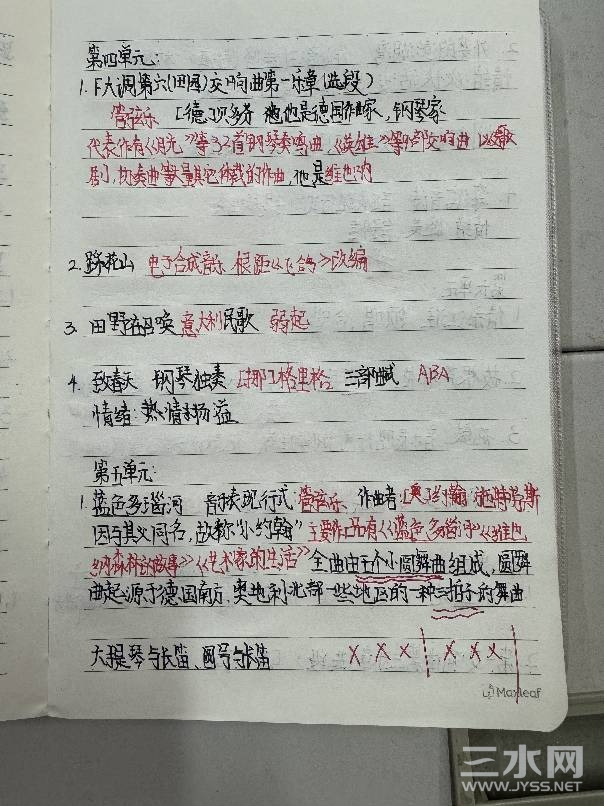 第四单元:
1.F大调第六(田园)交响曲第一乐章(选段)
管弦乐 [德]贝多芬 他也是德国作曲家,钢琴家
代表作有《月光》等32首钢琴奏鸣曲,《英雄》等9部交响曲 以及歌
剧,协奏曲等大量其它体裁的作曲,他是维也纳
2.踩花山 电子合成音乐 根距《飞鸽》改编
3.田野在召唤 意大利民歌 弱起
4.致春天 钢琴独奏 [挪]格里格 三部曲式 ABA
情绪:热情洋溢
第五单元:
1.蓝色多瑙河 音乐表现形式 管弦乐 作曲者:[奥]约翰·施特劳斯
因与其父同名,故称"小约翰" 主要作品有《蓝色多瑙河》《维也
纳森林的故事》《艺术家的生活》 全曲由五个小圆舞曲组成,圆舞
曲起源于德国南方,奥地利北部一些地区的一种三拍子的舞曲
大提琴与长笛、圆号与长笛 X X X | X X X |
Maxleaf
三水网
WWW.JYSS.NET